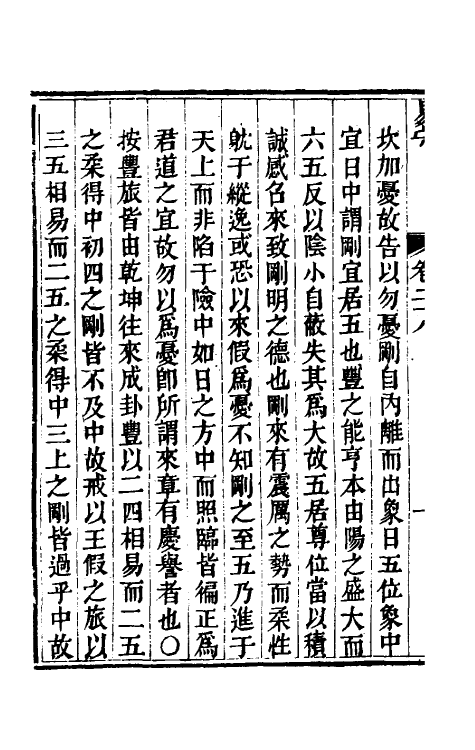 卷二十八
坎加憂故告以勿憂剛自內離而出象日五位象中
宜日中謂剛宜居五也豐之能亨本由陽之盛大而
六五反以陰小自蔽失其為大故五居尊位當以積
誠感名來致剛明之德也剛來有震厲之勢而柔性
躭于縱逸或恐以來假爲憂不知剛之至五乃進于
天上而非陷于險中如日之方中而照臨皆徧正爲
君道之宜故勿以爲憂卽所謂來章有慶譽者也〇
按豐旅皆由乾坤往來成卦豐以二四相易而二五
之柔得中初四之剛皆不及中故戒以王假之旅以
三五相易而二五之柔得中三上之剛皆過乎中故